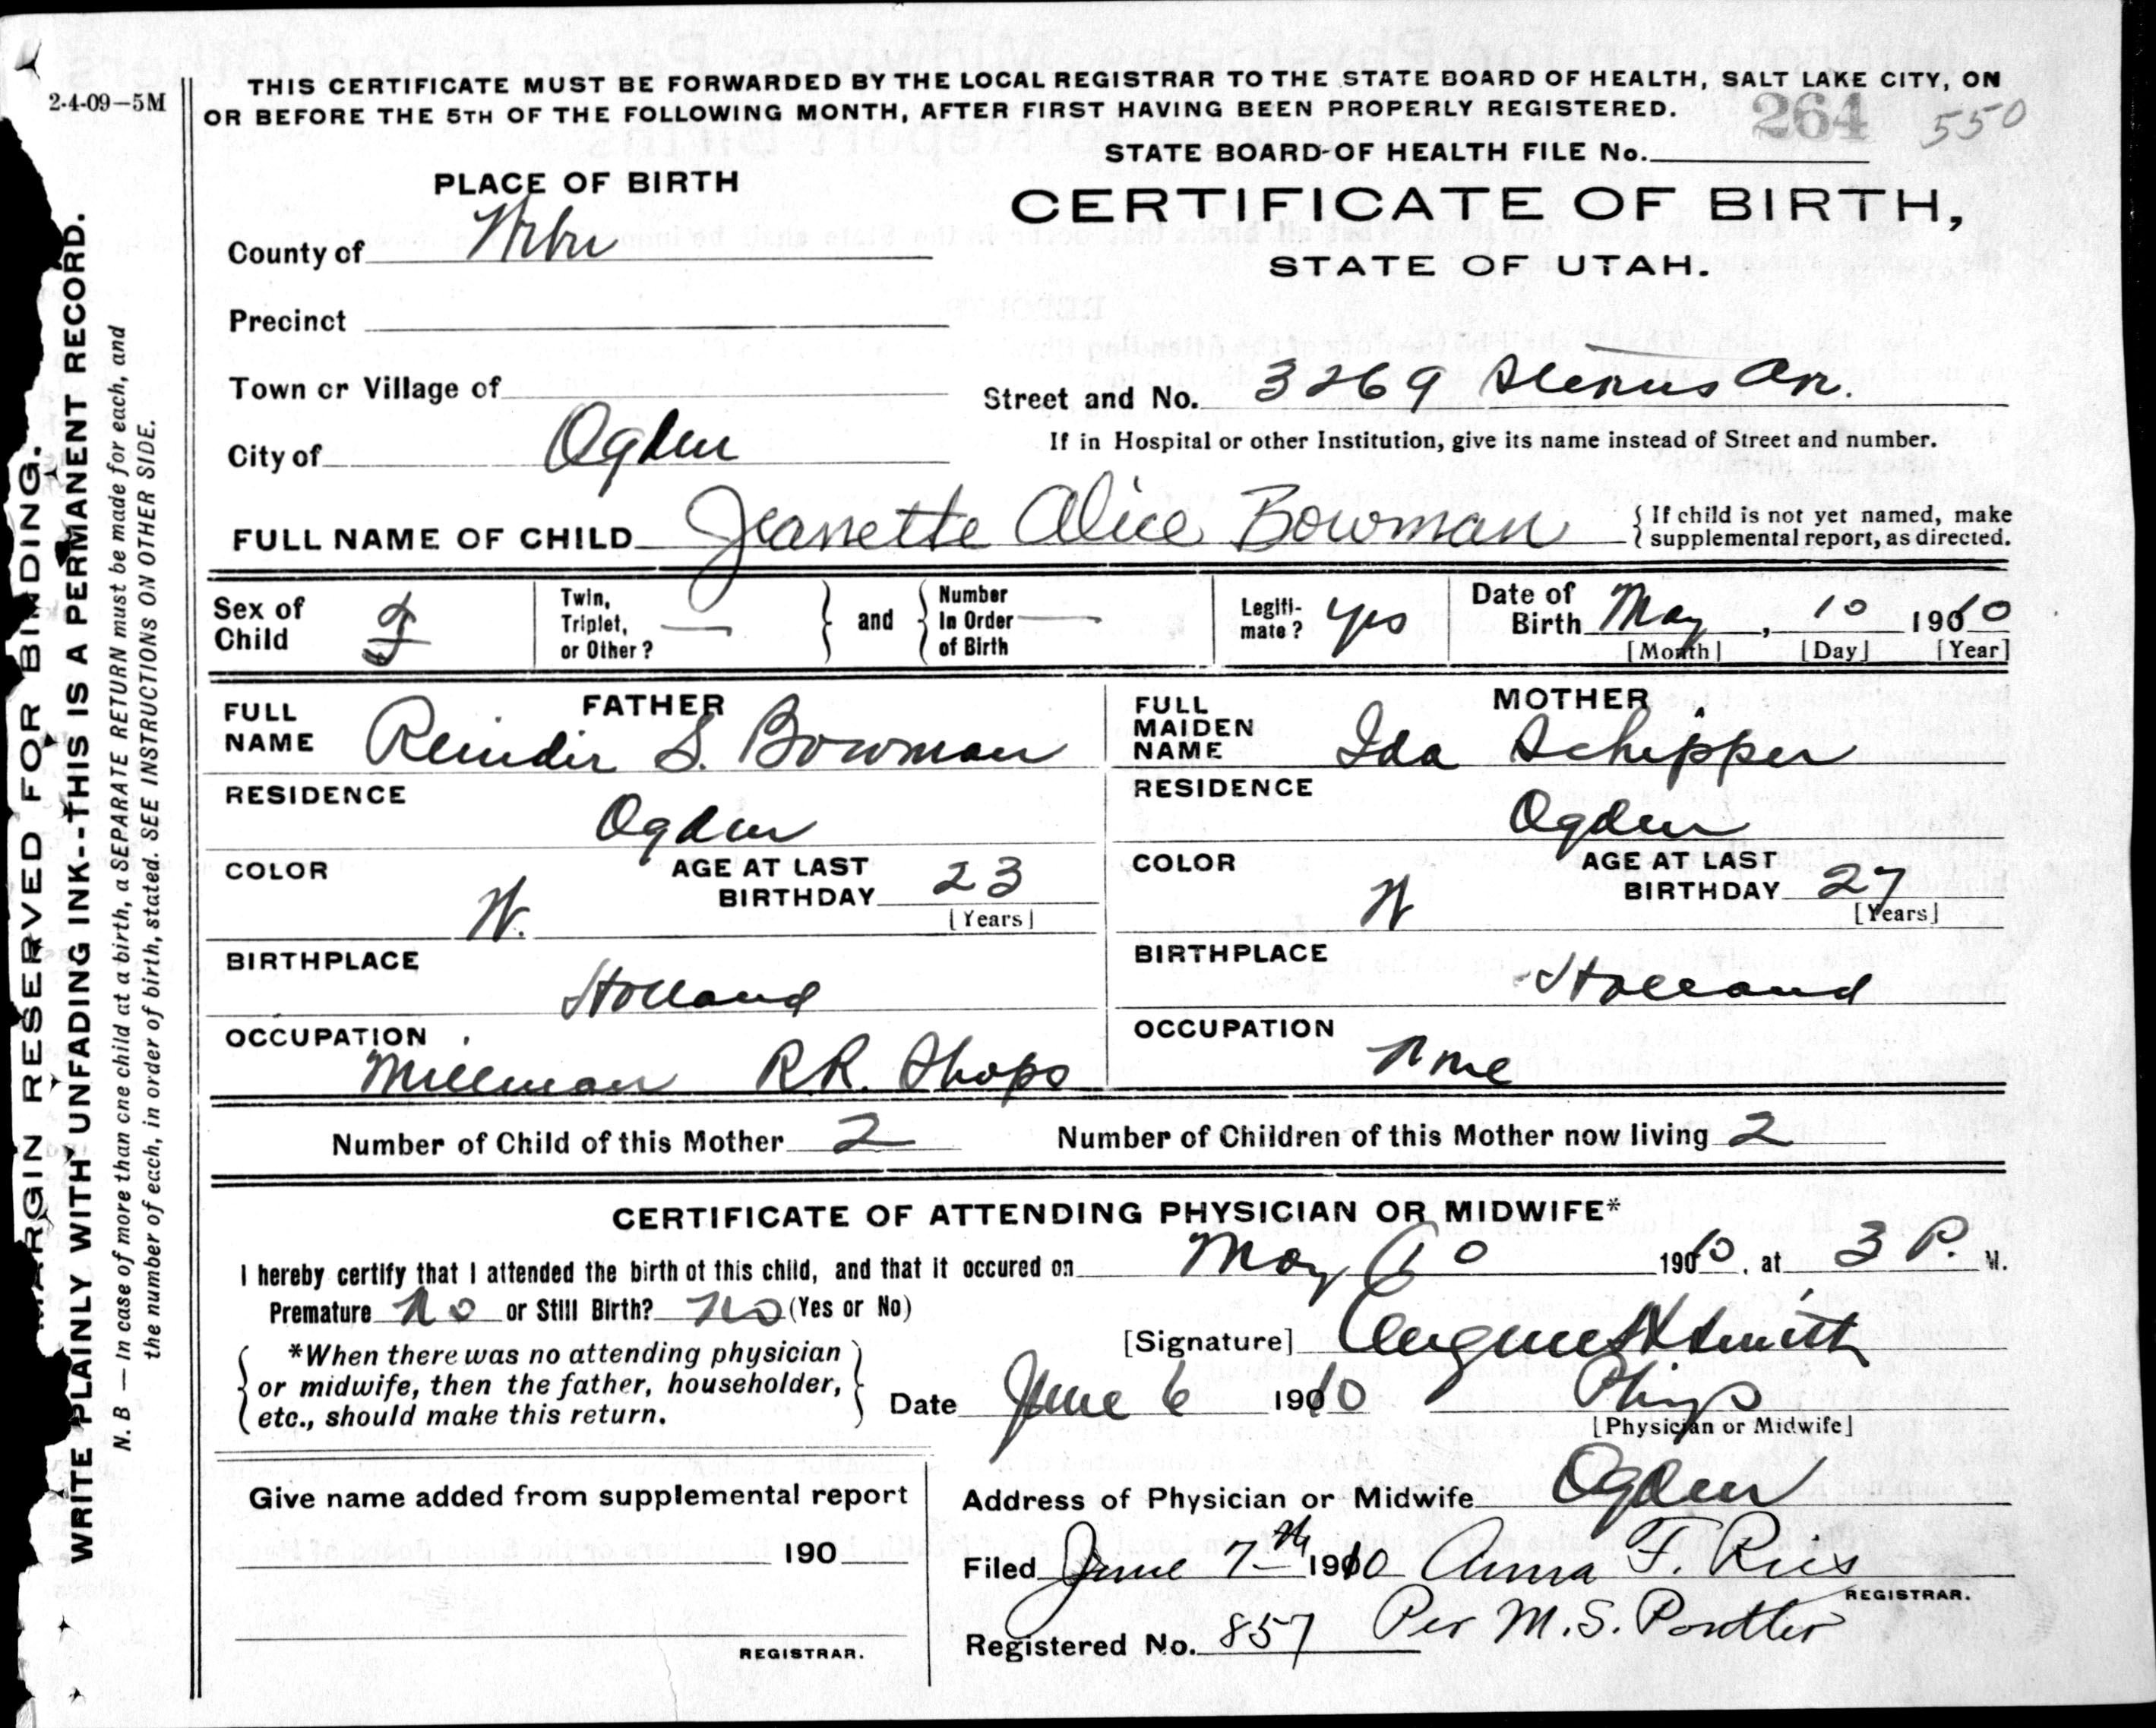 THIS CERTIFICATE MUST BE FORWARDED BY THE LOCAL REGISTRAR TO THE STATE BOARD OF HEALTH, SALT LAKE CITY, ON
2-4-09—5M
OR BEFORE THE 5TH OF THE FOLLOWING MONTH, AFTER FIRST HAVING BEEN PROPERLY REGISTERED.
264 550
STATE BOARD OF HEALTH FILE No.
PLACE OF BIRTH
CERTIFICATE OF BIRTH,
STATE OF UTAH.
County of Weber
Precinct
Town or Village of
Street and No. 3269 Av.
City of Ogden
If in Hospital or other Institution, give its name instead of Street and number.
FULL NAME OF CHILD Jeanette Alice Bowman
{ If child is not yet named, make
supplemental report, as directed.
Sex of Child F
Twin, Triplet, or Other? — } and { Number In Order of Birth —
Legiti-mate? yes
Date of Birth May, 10 1910
[Month] [Day] [Year]
FATHER
FULL NAME Reinder S. Bowman
RESIDENCE
Ogden
COLOR W. AGE AT LAST BIRTHDAY 23
[Years]
BIRTHPLACE
Holland
OCCUPATION
Millman R.R. Shops
MOTHER
FULL MAIDEN NAME Ida Schipper
RESIDENCE
Ogden
COLOR W AGE AT LAST BIRTHDAY 27
[Years]
BIRTHPLACE
Holland
OCCUPATION
none
Number of Child of this Mother 2 Number of Children of this Mother now living 2
CERTIFICATE OF ATTENDING PHYSICIAN OR MIDWIFE*
I hereby certify that I attended the birth of this child, and that it occured on May 10 1910, at 3 P. M.
Premature no or Still Birth? no (Yes or No)
[Signature] H Smith
*When there was no attending physician
or midwife, then the father, householder,
etc., should make this return.
Date June 6 1910 Phys
[Physician or Midwife]
Give name added from supplemental report
190
REGISTRAR.
Address of Physician or Midwife Ogden
Filed June 7th 1910 Anna F. Ries
REGISTRAR.
Registered No. 857 Per M.S.
MARGIN RESERVED FOR BINDING.
WRITE PLAINLY WITH UNFADING INK--THIS IS A PERMANENT RECORD.
N. B — In case of more than one child at a birth, a SEPARATE RETURN must be made for each, and
the number of each, in order of birth, stated. SEE INSTRUCTIONS ON OTHER SIDE.